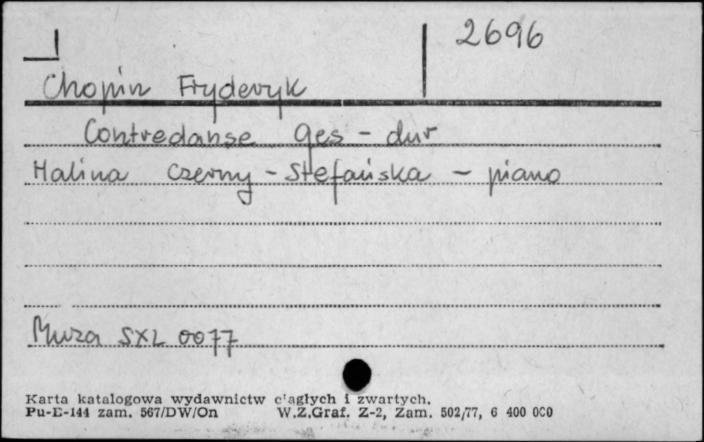 2696
Chopin Fryderyk
Contredanse ges-dur
Halina Czerny-Stefańska - piano
Muza SXL 0077
Karta katalogowa wydawnictw ciągłych i zwartych.
Pu-E-144 zam. 567/DW/On W.Z.Graf. Z-2, Zam. 502/77, 6 400 000